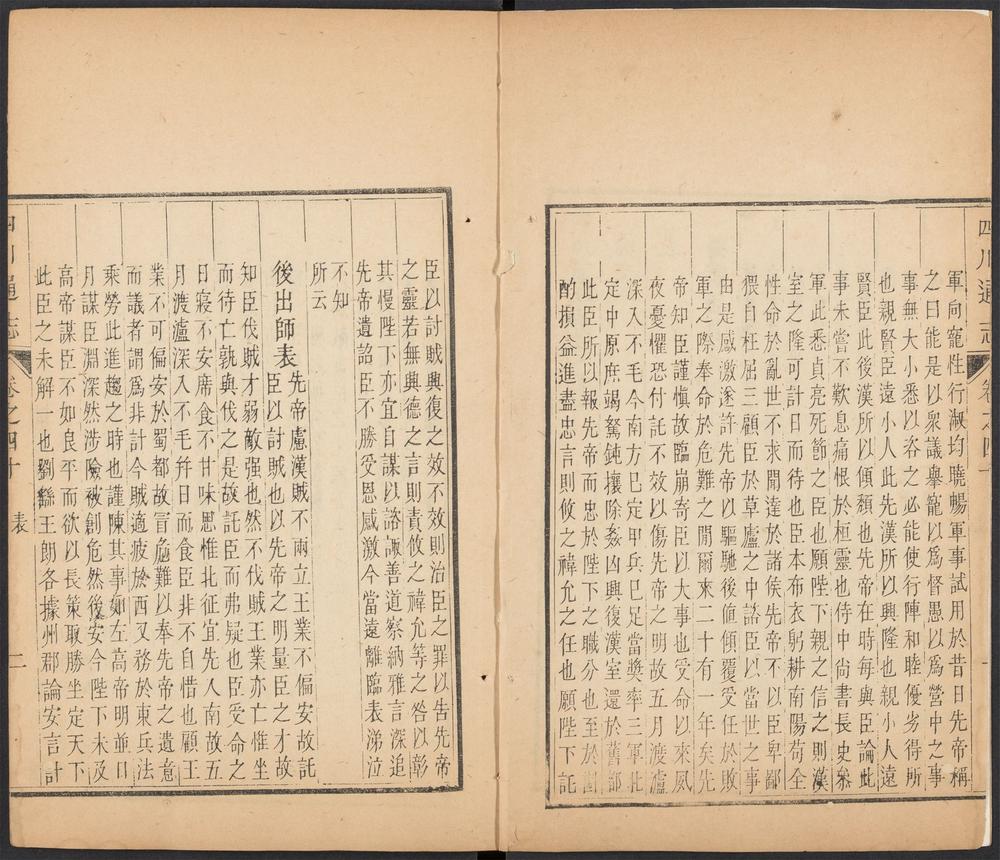 四川通志
卷之四十
軍向寵性行淑均曉暢軍事試用於昔日先帝稱
之曰能是以衆議舉寵以爲督愚以爲營中之事
事無大小悉以咨之必能使行陣和睦優劣得所
也親賢臣遠小人此先漢所以興隆也親小人遠
賢臣此後漢所以傾頹也先帝在時每與臣論此
事未嘗不歎息痛恨於桓靈也侍中尚書長史叅
軍此悉貞亮死節之臣也願陛下親之信之則漢
室之隆可計日而待也臣本布衣躬耕南陽苟全
性命於亂世不求聞達於諸侯先帝不以臣卑鄙
猥自枉屈三顧臣於草廬之中諮臣以當世之事
由是感激遂許先帝以驅馳後値傾覆受任於敗
軍之際奉命於危難之閒爾來二十有一年矣先
帝知臣謹愼故臨崩寄臣以大事也受命以來夙
夜憂懼恐付託不效以傷先帝之明故五月渡瀘
深入不毛今南方已定甲兵已足當奬率三軍北
定中原庶竭駑鈍攘除姦凶興復漢室還於舊都
此臣所以報先帝而忠於陛下之職分也至於
酌損益進盡忠言則攸之禕允之任也願陛下託
臣以討賊興復之效不效則治臣之罪以告先帝
之靈若無興德之言則責攸之禕允等之咎以彰
其慢陛下亦宜自謀以諮諏善道察納雅言深追
先帝遺詔臣不勝受恩感激今當遠離臨表涕泣
不知
所云
後出師表先帝慮漢賊不兩立王業不偏安故託
臣以討賊也以先帝之明量臣之才故
知臣伐賊才弱敵强也然不伐賊王業亦亡惟坐
而待亡孰與伐之是故託臣而弗疑也臣受命之
日寢不安席食不甘味思惟北征宜先入南故五
月渡瀘深入不毛幷日而食臣非不自惜也顧王
業不可偏安於蜀都故冒危難以奉先帝之遺意
而議者謂爲非計今賊適疲於西又務於東兵法
乘勞此進趨之時也謹陳其事如左高帝明並日
月謀臣淵深然涉險被創危然後安今陛下未及
高帝謀臣不如良平而欲以長策取勝坐定天下
此臣之未解一也劉繇王朗各據州郡論安言計
四川通志
卷之四十
表
二